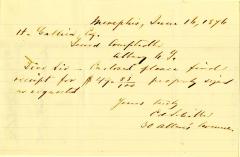 Memphis, June 16, 1876
H. Gallien, Esq.
Second Comptroller
Albany N.Y.
Dear Sir – Enclosed please find
receipt for $49 23/100 properly signed
as requested
Yours truly
30 Adams Avenue.